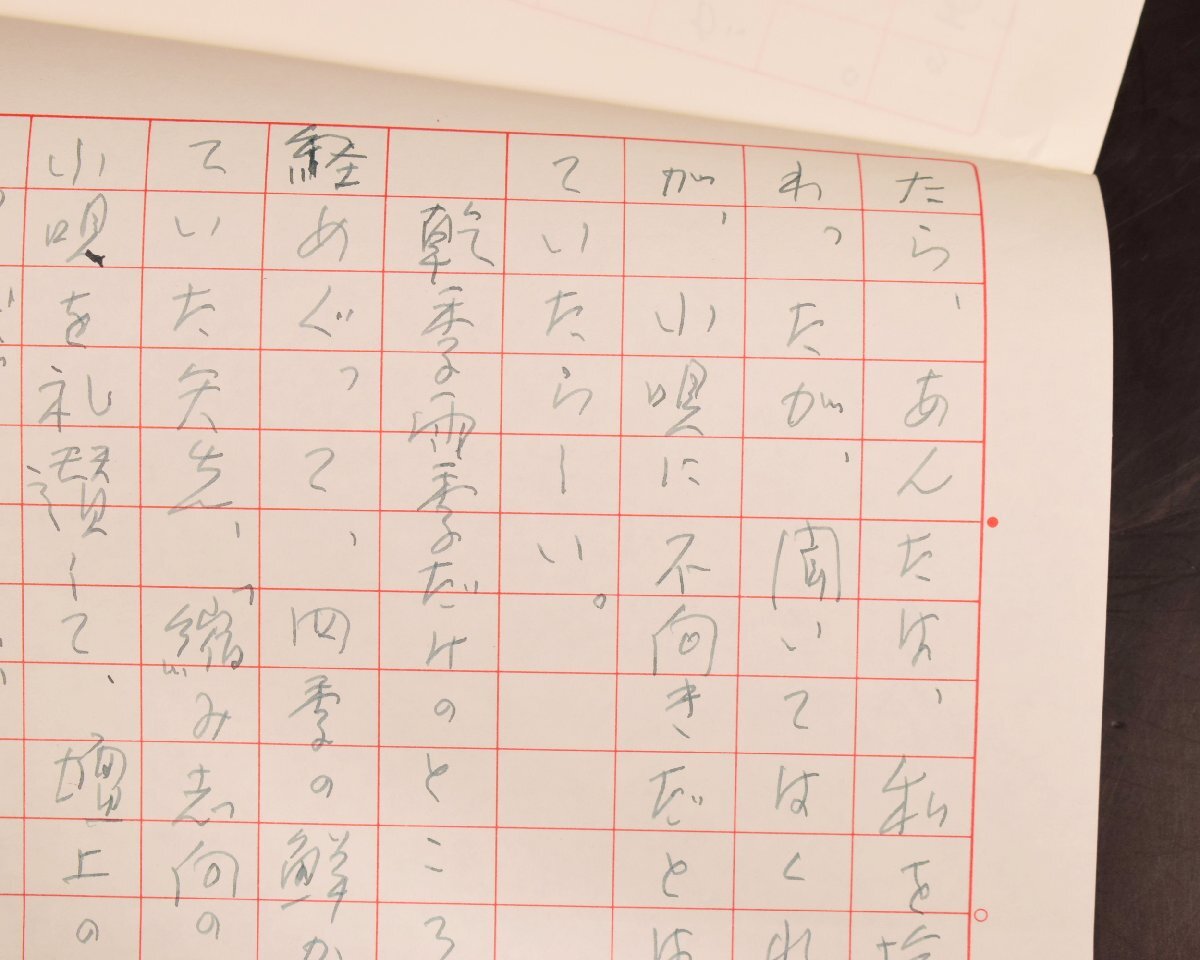 たら、あんたは、私を
わったが、聞いてはくれ
が、小唄に不向きだとは
ていたらしい。
乾季雨季だけのところ
経めぐって、四季の鮮か
ていた矢先、縮み志向の
小唄を礼讃して、壇上の